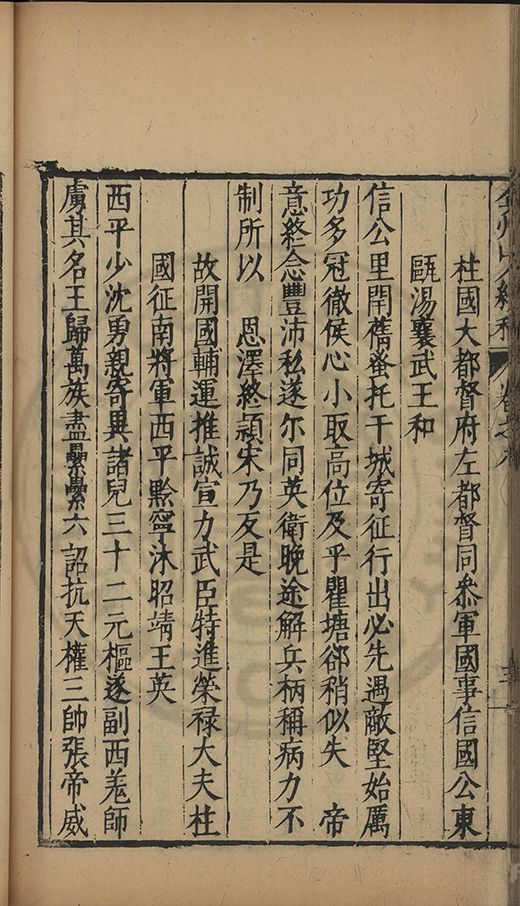 柱國大都督府左都督同叅軍國事信國公東
甌湯襄武王和
信公里閈舊蚤托干城寄征行出必先遇敵堅始厲
功多冠徹侯心小取高位及乎瞿塘郤稍似失　帝
意終念豐沛私遂尔同英衛晚途解兵柄稱病力不
制所以　恩澤終潁宋乃反是
故開國輔運推誠宣力武臣特進榮祿大夫柱
國征南將軍西平黔寧沐昭靖王英
西平少沈勇親寄異諸兒三十二元樞遂副西羗師
虜其名王歸萬族盡纍纍六詔抗天權三帥張帝威